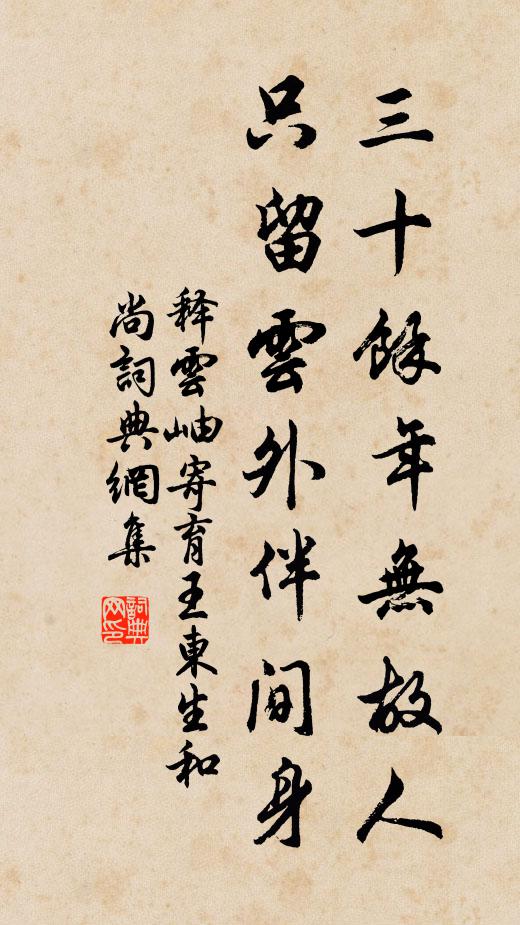 三十餘年無故人
只留雲外伴间身
释雲岫寄育王東生和
尚詞典網集
詞典
网印